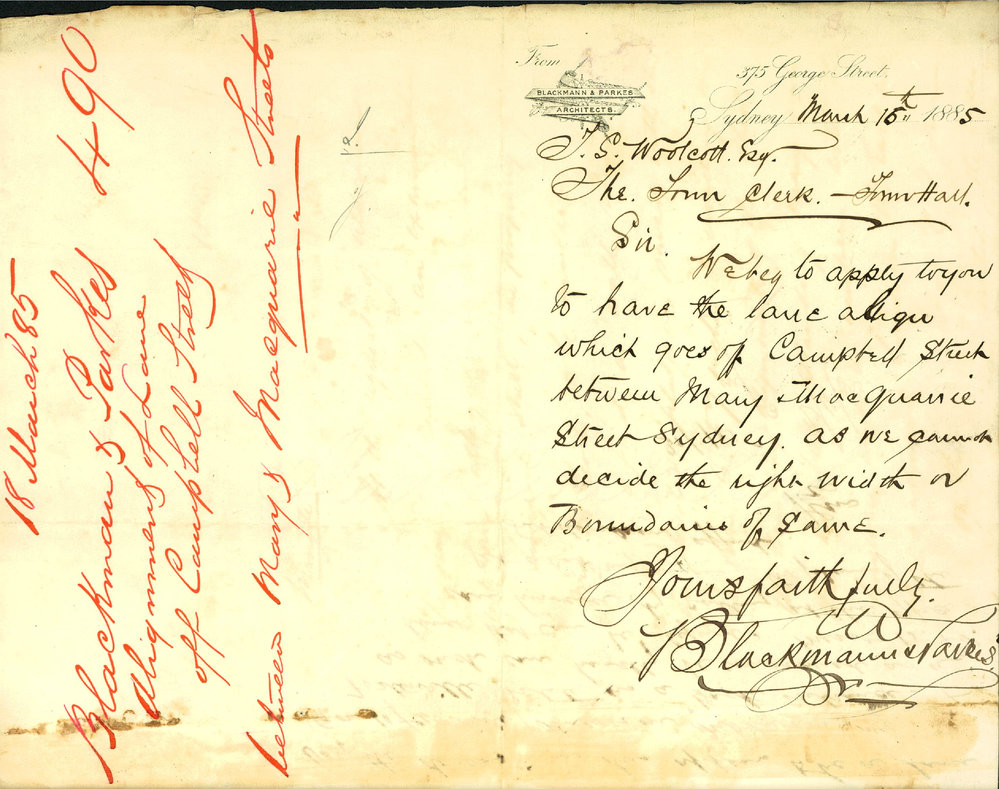 From
BLACKMANN & PARKES
ARCHITECTS.
375 George Street.
Sydney March 16th 1885
T. G. Woolcott. Esq.
The Town Clerk. — Town Hall.
Sir.
We beg to apply to you
to have the lane align
which goes of Campbell Street
between Mary & MacQuarrie
Street Sydney. as we cannot
decide the right width or
Boundaries of Same.
Yours faithfully.
Blackmann & Parkes
18 March 85
490
Blackman & Parkes
Alignment of Lane
off Campbell Street
between Mary & Macquarie Streets